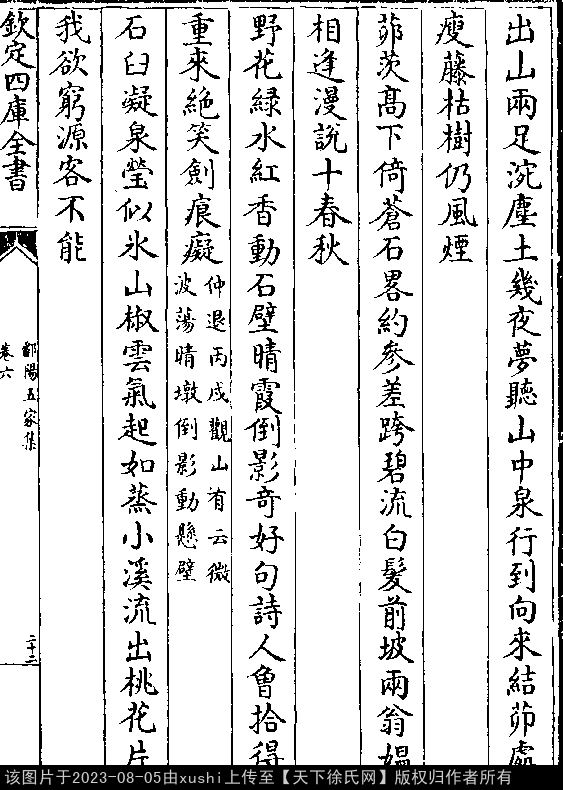 出山兩足涴塵土幾夜夢聽山中泉行到向來結茆處
瘦藤枯樹仍風煙
茆茨髙下倚蒼石畧約參差跨碧流白髮前坡兩翁媪
相逢漫說十春秋
野花緑水紅香動石壁晴霞倒影竒好句詩人曾拾得
重來絶笑劍痕癡
仲退丙戌觀山有云微
波蕩晴墩倒影動懸壁
石臼凝泉瑩似氷山椒雲氣起如蒸小溪流出桃花片
我欲窮源客不能
欽定四庫全書
鄱陽五家集
卷六
二十二
该图片于2023-08-05由xushi上传至【天下徐氏网】版权归作者所有